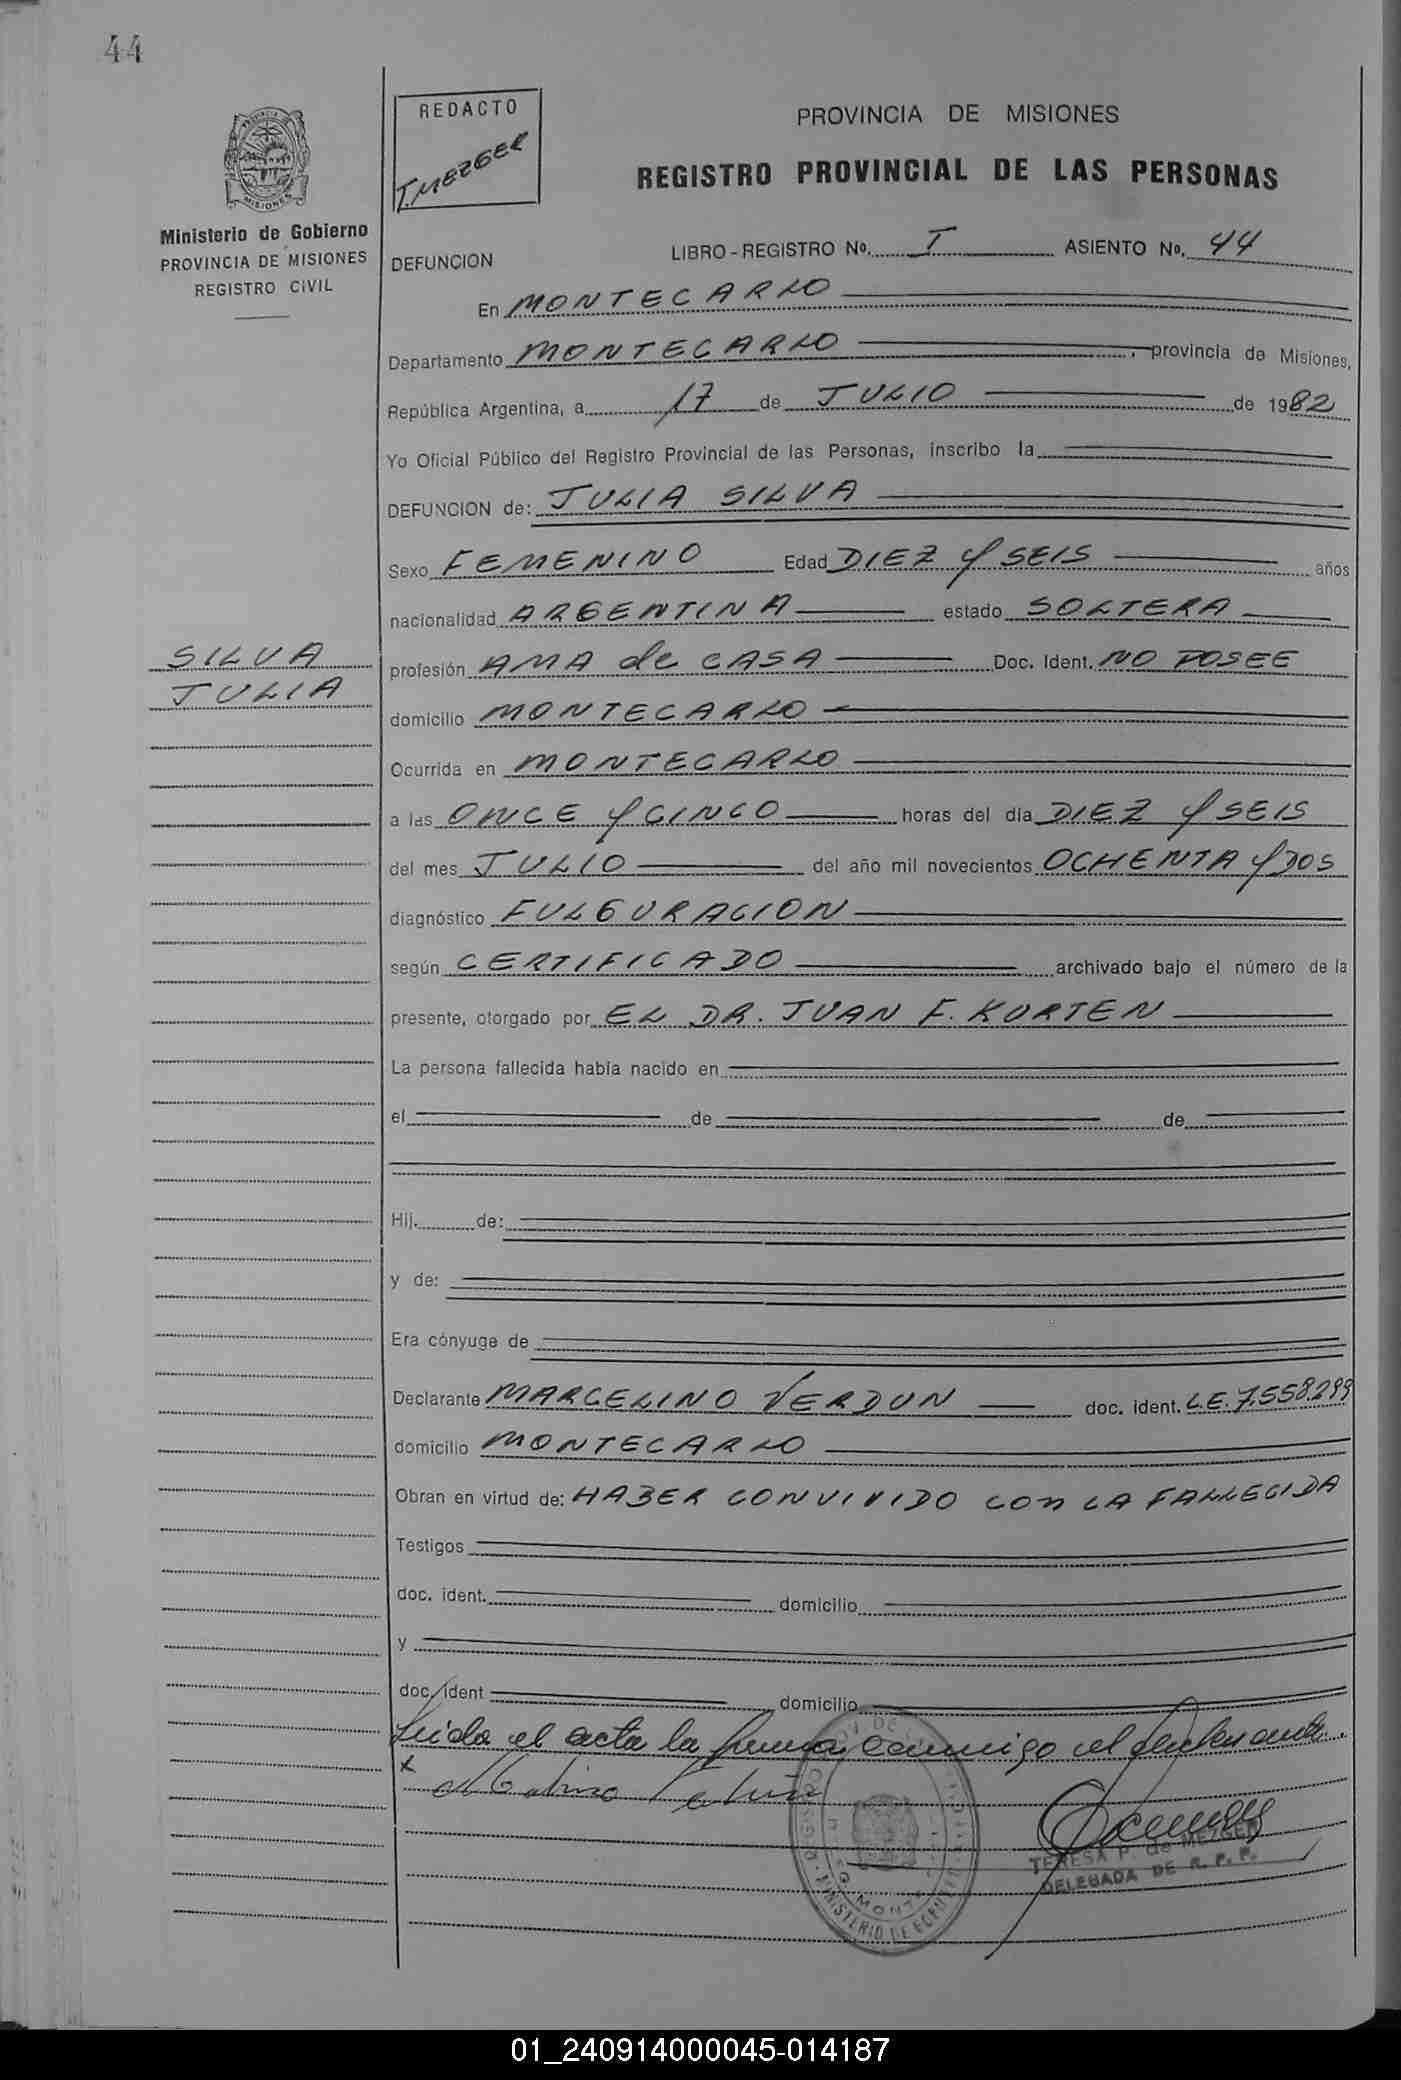 44
REDACTO
T. MEZGER
Ministerio de Gobierno
PROVINCIA DE MISIONES
REGISTRO CIVIL
PROVINCIA DE MISIONES
REGISTRO PROVINCIAL DE LAS PERSONAS
DEFUNCION LIBRO - REGISTRO No. I ASIENTO No. 44
En MONTECARLO
Departamento MONTECARLO, provincia de Misiones,
República Argentina, a 17 de JULIO de 1982
Yo Oficial Público del Registro Provincial de las Personas, inscribo la
DEFUNCION de: JULIA SILVA
Sexo FEMENINO Edad DIEZ y SEIS años
nacionalidad ARGENTINA estado SOLTERA
SILVA
JULIA
profesión AMA de CASA Doc. Ident. NO POSEE
domicilio MONTECARLO
Ocurrida en MONTECARLO
a las ONCE y CINCO horas del día DIEZ y SEIS
del mes JULIO del año mil novecientos OCHENTA y DOS
diagnóstico FULGURACION
según CERTIFICADO archivado bajo el número de la
presente, otorgado por EL DR. JUAN F. KURTEN
La persona fallecida había nacido en
el de de
Hij. de:
y de:
Era cónyuge de
Declarante MARCELINO VERDUN doc. ident. L.E. 7.558.299
domicilio MONTECARLO
Obran en virtud de: HABER CONVIVIDO con LA FALLECIDA
Testigos
doc. ident. domicilio
y
doc. ident domicilio
Leida el acta la firma conmigo el declarante.
x
TERESA P. de MEZGER
DELEGADA DE R. P. P.
MINISTERIO DE
01_240914000045-014187